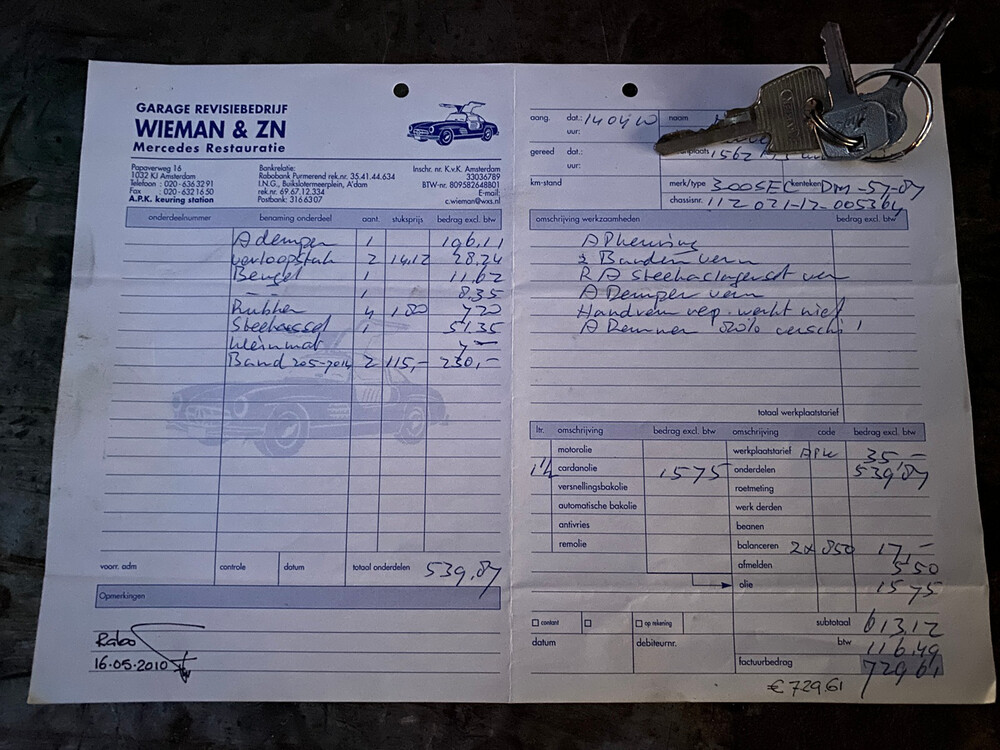 GARAGE REVISIEBEDRIJF
WIEMAN & ZN
Mercedes Restauratie
Papaverweg 16
1032 KJ Amsterdam
Telefoon : 020 - 636 32 91
Fax : 020 - 632 16 50
A.P.K. keuring station
Bankrelatie:
Rabobank Purmerend rek.nr. 35.41.44.634
I.N.G., Buikslotermeerplein, A'dam
rek.nr. 69.67.12.334
Postbank: 3166307
Inschr. nr. K.v.K. Amsterdam
33036789
BTW-nr. 809582648B01
E-mail:
c.wieman@wxs.nl
onderdeelnummer benaming onderdeel aant. stuksprijs bedrag excl. btw
A demper 1 196,11
verloopstuk 2 14,12 28,24
Beugel 1 11,62
1 8,35
Rubber 4 1,80 7,20
1 51,35
Klein mat 7,-
Band 205-70 14 2 115,- 230,-
voorr. adm controle datum totaal onderdelen 539,87
Opmerkingen
Rabo
16.05.2010
aang. dat.: 14 04 10 naam
uur:
gereed dat.:
uur:
km-stand merk/type 300SEC kenteken DM-57-87
chassisnr. 112 021-12-005364
omschrijving werkzaamheden bedrag excl. btw
APkeuring
2 Banden vern
R A
A Demper vern
Handrem rep. werkt niet
A Remmen
totaal werkplaatstarief
ltr. omschrijving bedrag excl. btw omschrijving code bedrag excl. btw
motorolie werkplaatstarief APK 35,-
1½ cardanolie 15 75 onderdelen 539,87
versnellingsbakolie roetmeting
automatische bakolie werk derden
antivries beanen
remolie balanceren 2x 850 17,-
afmelden 5 50
olie 15 75
contant op rekening subtotaal 613,12
datum debiteurnr. btw 116,49
factuurbedrag 729 61
€ 729,61